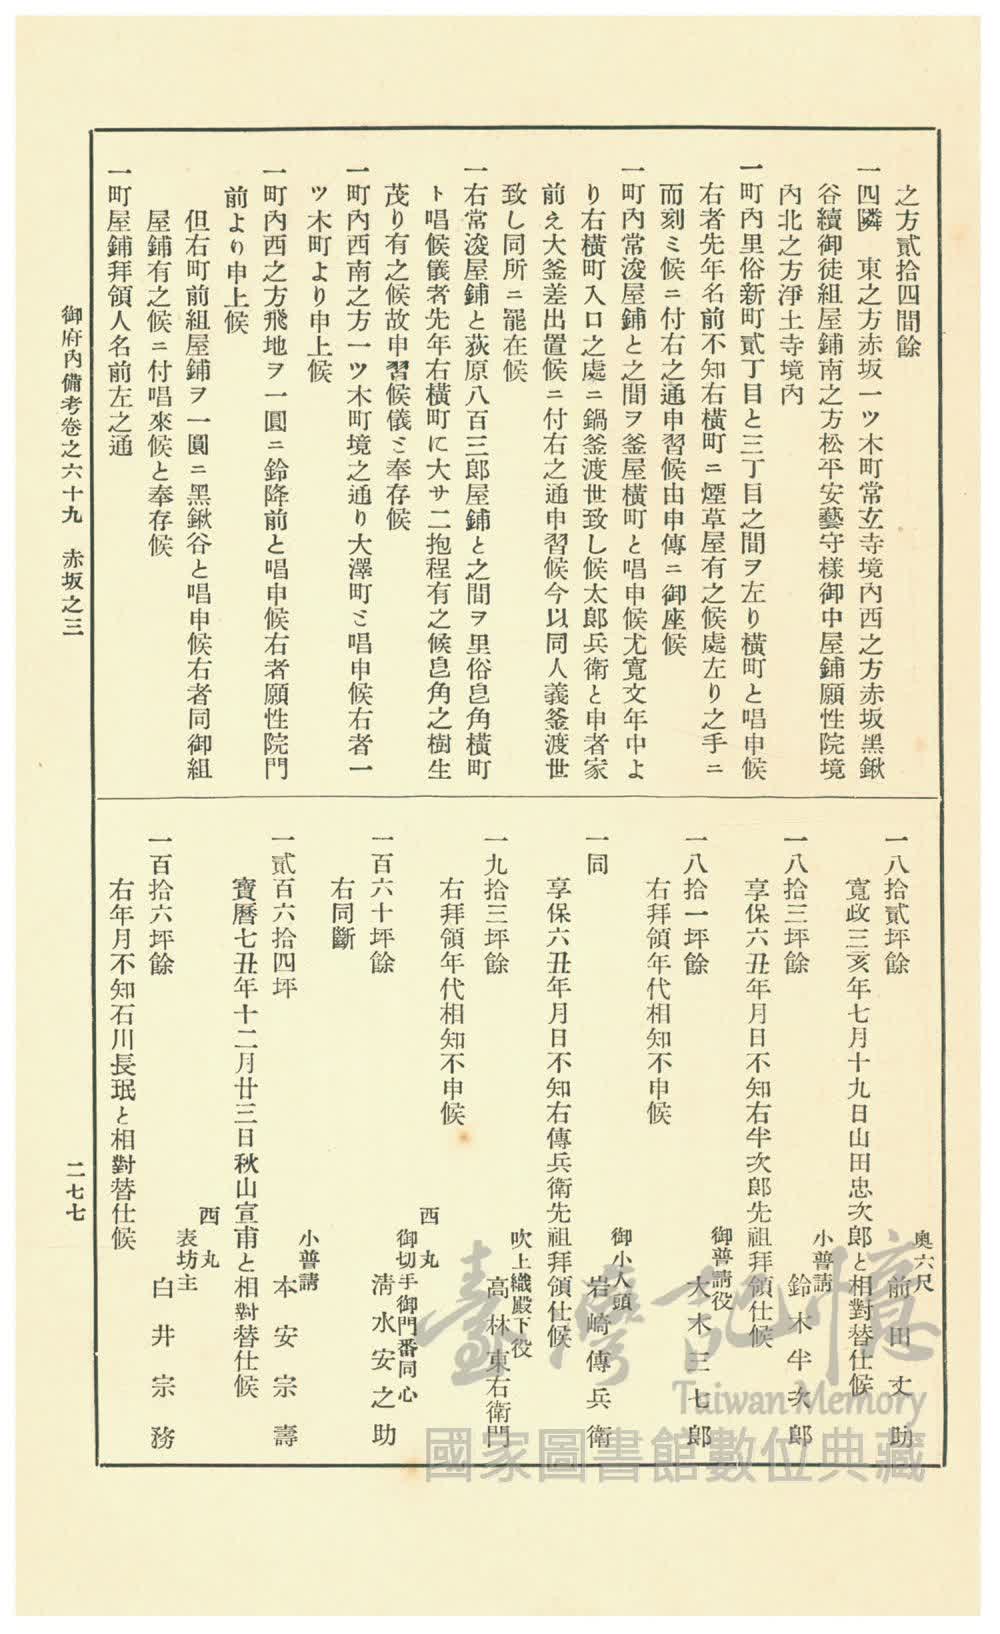 之方貳拾四間餘
一四隣　東之方赤坂一ツ木町常玄寺境內西之方赤坂黑鍬
谷續御徒組屋鋪南之方松平安藝守樣御中屋鋪願性院境
內北之方淨土寺境內
一町內里俗新町貳丁目と三丁目之間ヲ左り橫町と唱申候
右者先年名前不知右橫町ニ煙草屋有之候處左り之手ニ
而刻ミ候ニ付右之通申習候由申傳ニ御座候
一町內常浚屋鋪と之間ヲ釜屋橫町と唱申候尤寬文年中よ
り右橫町入口之處ニ鍋釜渡世致し候太郞兵衛と申者家
前え大釜差出置候ニ付右之通申習候今以同人義釜渡世
致し同所ニ罷在候
一右常浚屋鋪と荻原八百三郞屋鋪と之間ヲ里俗皀角橫町
ト唱候儀者先年右橫町に大サ二抱程有之候皀角之樹生
茂り有之候故申習候儀ミ奉存候
一町內西南之方一ツ木町境之通り大澤町ミ唱申候右者一
ツ木町より申上候
一町內西之方飛地ヲ一圓ニ鈴降前と唱申候右者願性院門
前より申上候
但右町前組屋鋪ヲ一圓ニ黑鍬谷と唱申候右者同御組
屋鋪有之候ニ付唱來候と奉存候
一町屋鋪拜領人名前左之通
奧六尺
一八拾貳坪餘　前田丈助
寬政三亥年七月十九日山田忠次郞と相對替仕候
小普請
一八拾三坪餘　鈴木半次郞
享保六丑年月日不知右半次郞先祖拜領仕候
御普請役
一八拾一坪餘　大木三七郞
右拜領年代相知不申候
御小人頭
一同　岩崎傳兵衛
享保六丑年月日不知右傳兵衛先祖拜領仕候
吹上織殿下役
一九拾三坪餘　高林東右衛門
右拜領年代相知不申候
西丸
御切手御門番同心
一百六十坪餘　淸水安之助
右同斷
小普請
一貳百六拾四坪　本安宗壽
寶曆七丑年十二月廿三日秋山宣甫と相對替仕候
西丸
表坊主
一百拾六坪餘　白井宗務
右年月不知石川長珉と相對替仕候
御府內備考卷之六十九　赤坂之三
二七七
臺灣記憶
Taiwan Memory
國家圖書館數位典藏